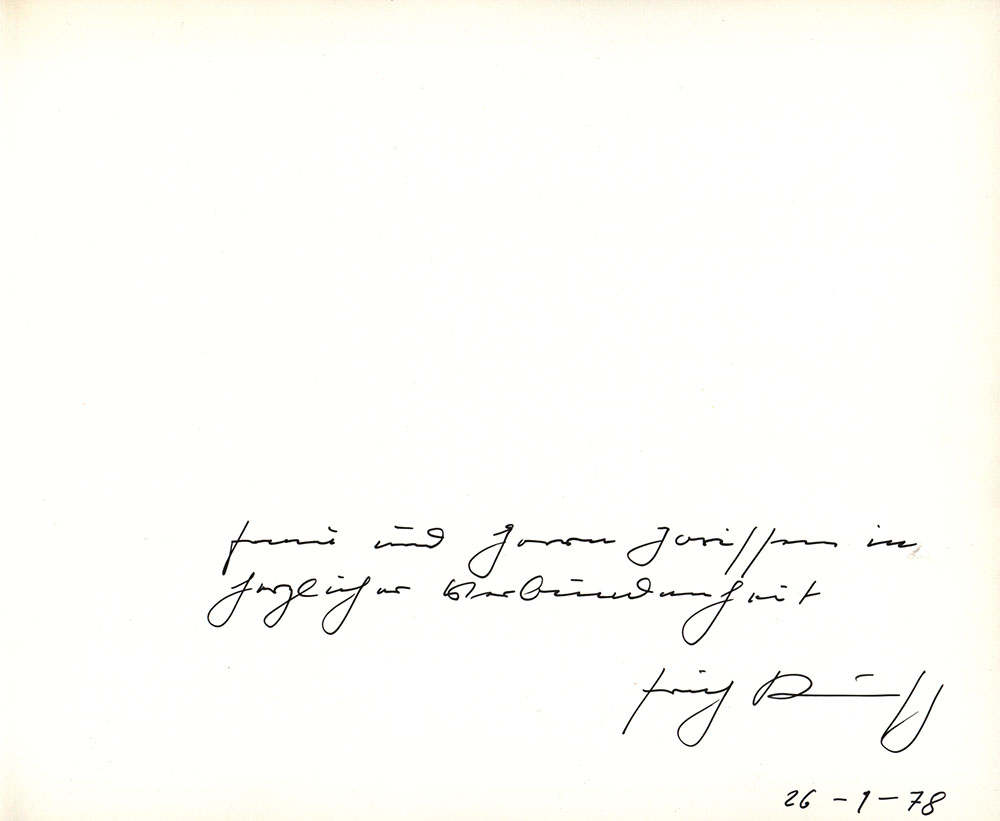 Frau und Herrn Jorissen in
herzlicher Verbundenheit
Fritz Ruoff
26 - 1 - 78